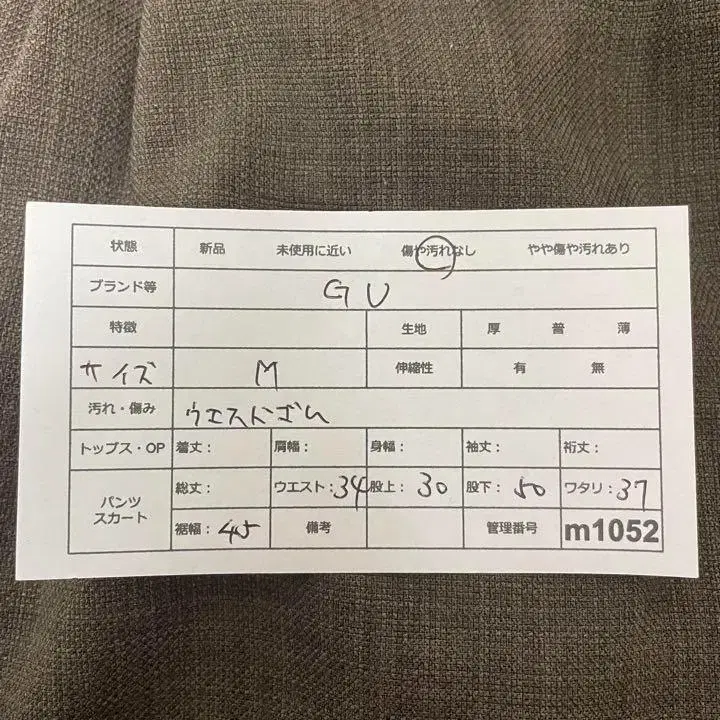 状態 新品 未使用に近い 傷や汚れなし やや傷や汚れあり
ブランド等 GU
特徴 生地 厚 普 薄
サイズ M 伸縮性 有 無
汚れ・傷み ウエストゴム
トップス・OP 着丈: 肩幅: 身幅: 袖丈: 裄丈:
パンツ スカート 総丈: ウエスト:34 股上:30 股下:50 ワタリ:37
裾幅:45 備考 管理番号 m1052